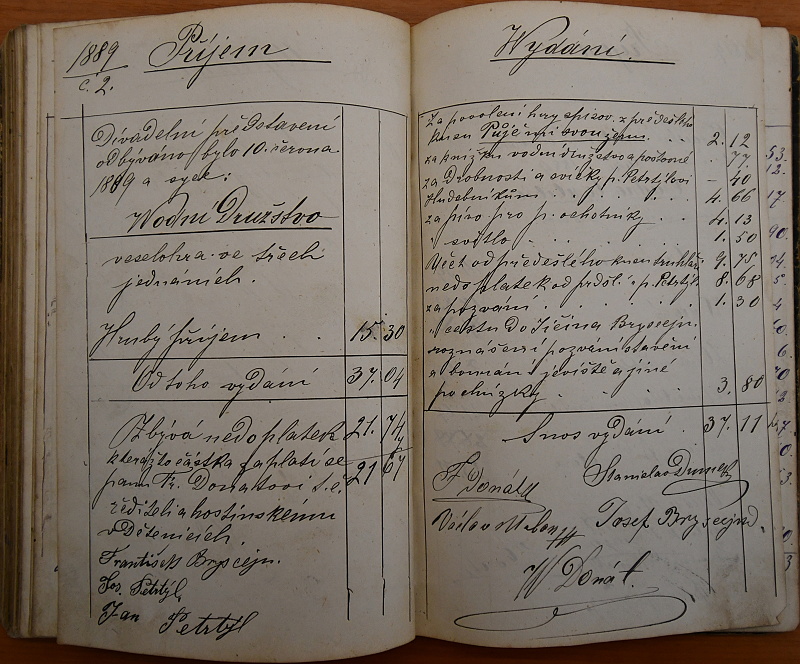 1889
č. 2.
Příjem
Divadelní představení
odbýváno bylo 10. června
1889 a sice:
Wodní Družstvo
veselohra ve třech
jednáních.
Hrubý příjem . . 15. 30
Od toho vydání 37. 04
Zbývá nedoplatek 21. 74
kterážto částka zaplatí se 21 67
panu Fr. Donátovi t. č.
řediteli a hostinskému
v Dětenicích.
František Bryscejn.
Jos. Petrtýl
Jan Petrtýl
Wydání.
Za povolení hry spisov. z předešlého
kusu Půjčení svou ženu . . 2. 12
za knížku vodní družstvo a poštovné . 77
za Drobnosti a svíčky p. Petrtýlovi – 40
Hudebníkům . . . . 4. 66
za pivo pro p. ochotníky . . 4. 13
" světlo . . . . 1. 50
Účet od předešlého kusu truhlář 9. 75
nedoplatek od p. Petrtýl 8. 68
za pozvání . . . . 1. 30
" cestu do Jičína Bryscejn.
roznášení pozvání stavění
a bourání jeviště a jiné
pochůzky . . . . 3. 80
Snos vydání . 37. 11
F Donát
Stanislav
Václav
Josef Bryscejn.
W Donát.